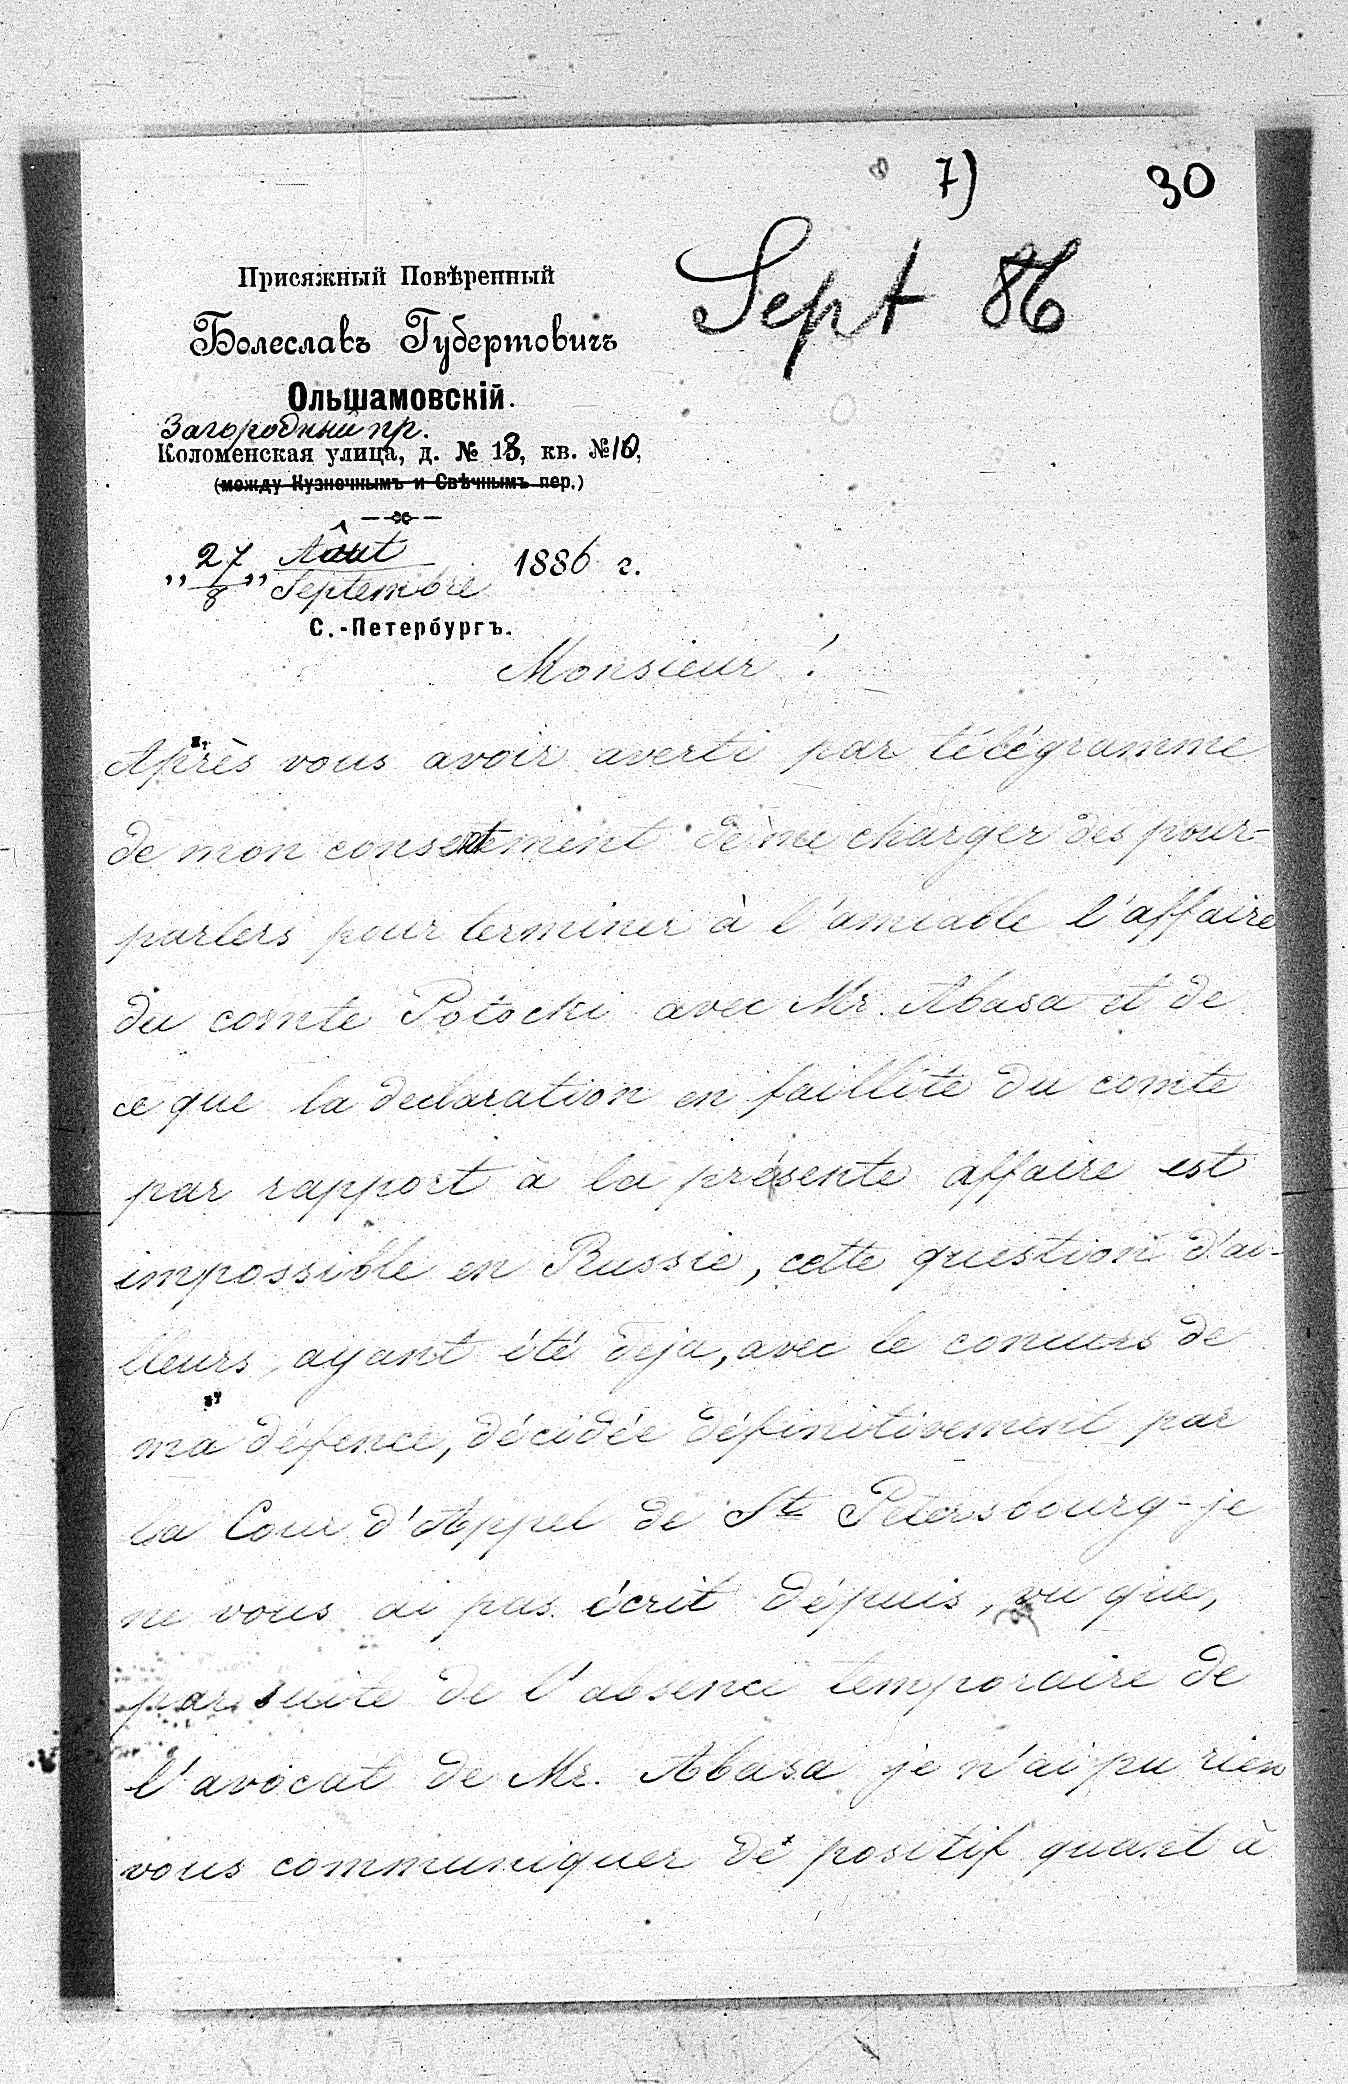 7) 30
Sept 86
Присяжный Повѣренный
Болеславъ Губертовичъ
Ольшамовскій.
Загородный пр.
Коломенская улица, д. № 13, кв. №10,
(между Кузнечнымъ и Свѣчнымъ пер.)
„27/8“ Aôut/Septembre 1886 г.
С.-Петербургъ.
Monsieur!
Après vous avoir averti par télégramme
de mon consentement de me charger des pour-
parlers pour terminer à l'amiable l'affaire
du comte Potocki avec Mr. Abasa et de
ce que la declaration en faillite du comte
par rapport à la présente affaire est
impossible en Russie, cette question d'ai-
lleurs, ayant été deja, avec le concours de
ma défence, décidée définitivement par
la Cour d'Appel de St. Pétersbourg - je
ne vous ai pas écrit dépuis, vu que,
par suite de l'absence temporaire de
l'avocat de Mr. Abasa je n'ai pu rien
vous communiquer de positif quant à